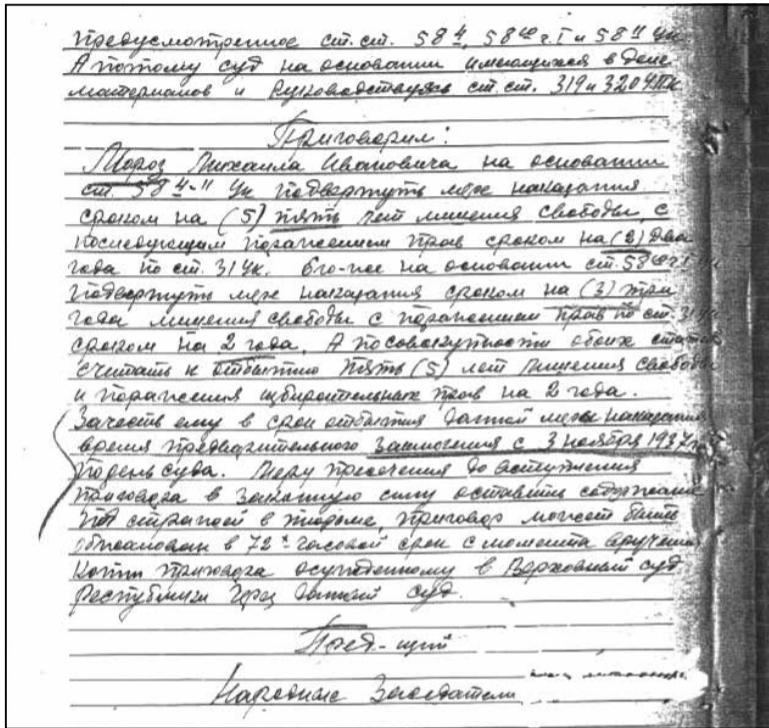 предусмотренное ст.ст. 58⁴, 58¹⁰ ч.I и 58¹¹ УК
А поэтому суд на основании имеющихся в деле
материалов и руководствуясь ст.ст. 319 и 320 УПК
Приговорил:
Мороз Михаила Ивановича на основании
ст. 58⁴⁻¹¹ УК подвергнуть мере наказания
сроком на (5) пять лет лишения свободы, с
последующим поражением прав сроком на (2) два
года по ст. 31 УК. Его-же на основании ст. 58¹⁰ ч.I УК
подвергнуть мере наказания сроком на (3) три
года лишения свободы с поражением прав по ст. 31 УК
сроком на 2 года. А по совокупности обоих статей
считать к отбытию пять (5) лет лишения свободы
и поражения избирательных прав на 2 года.
Зачесть ему в срок отбытия данной меры наказания
время предварительного заключения с 3 ноября 1937 г.
по день суда. Меру пресечения до вступления
приговора в законную силу оставить содержание
под стражей в тюрьме, приговор может быть
обжалован в 72ˣ часовой срок с момента вручения
копии приговора осужденному в Верховный суд
Республики через данный суд.
Пред-щий
Народные Заседатели